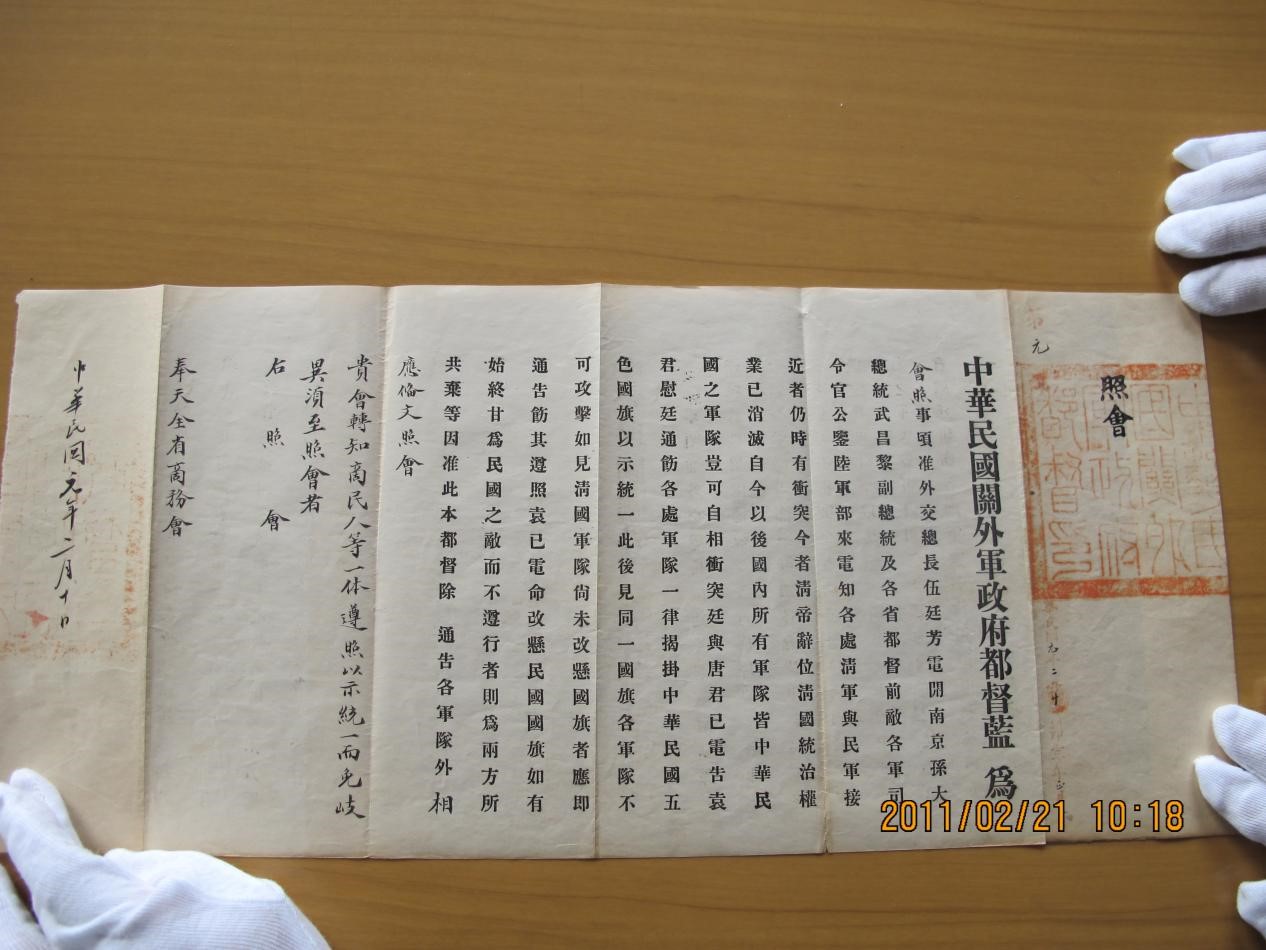 照會
元
中華民國關外軍政府都督藍 爲
會照事頃准外交總長伍廷芳電開南京孫大
總統武昌黎副總統及各省都督前敵各軍司
令官公鑒陸軍部來電知各處淸軍與民軍接
近者仍時有衝突今者淸帝辭位淸國統治權
業已消滅自今以後國內所有軍隊皆中華民
國之軍隊豈可自相衝突廷與唐君已電告袁
君慰廷通飭各處軍隊一律揭掛中華民國五
色國旗以示統一此後見同一國旗各軍隊不
可攻擊如見淸國軍隊尙未改懸國旗者應卽
通告飭其遵照袁已電命改懸民國國旗如有
始終甘爲民國之敵而不遵行者則爲兩方所
共棄等因准此本都督除 通告各軍隊外相
應偹文照會
貴會轉知商民人等一体遵照以示統一而免歧
異須至照會者
右照會
奉天全省商務會
中華民國元年二月十日
2011/02/21 10:18